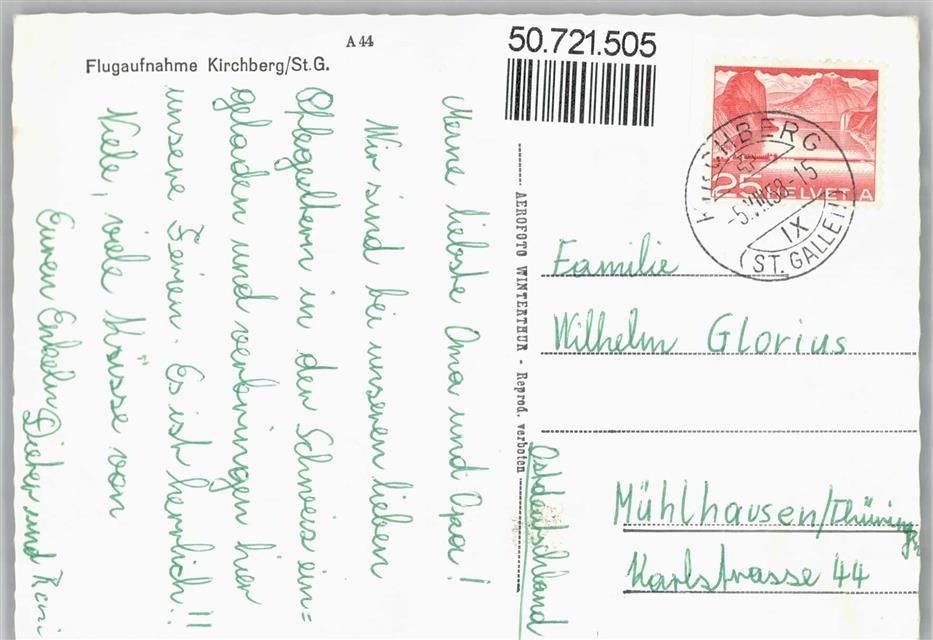 A 44
Flugaufnahme Kirchberg/St.G.
50.721.505
Meine liebste Oma und Opa!
Wir sind bei unseren lieben
Pflegeltern in der Schweiz ein=
geladen und verbringen hier
unsere Ferien. Es ist herrlich!!
Viele, viele Küsse von
Euren Enkeln Dieter und
AEROFOTO WINTERTHUR - Reprod. verboten
25 HELVETIA
KIRCHBERG
-5.VIII.58-15
IX
(ST. GALLEN)
Familie
Wilhelm Glorius
Mühlhausen/Thüring
Karlstrasse 44
Ostdeutschland